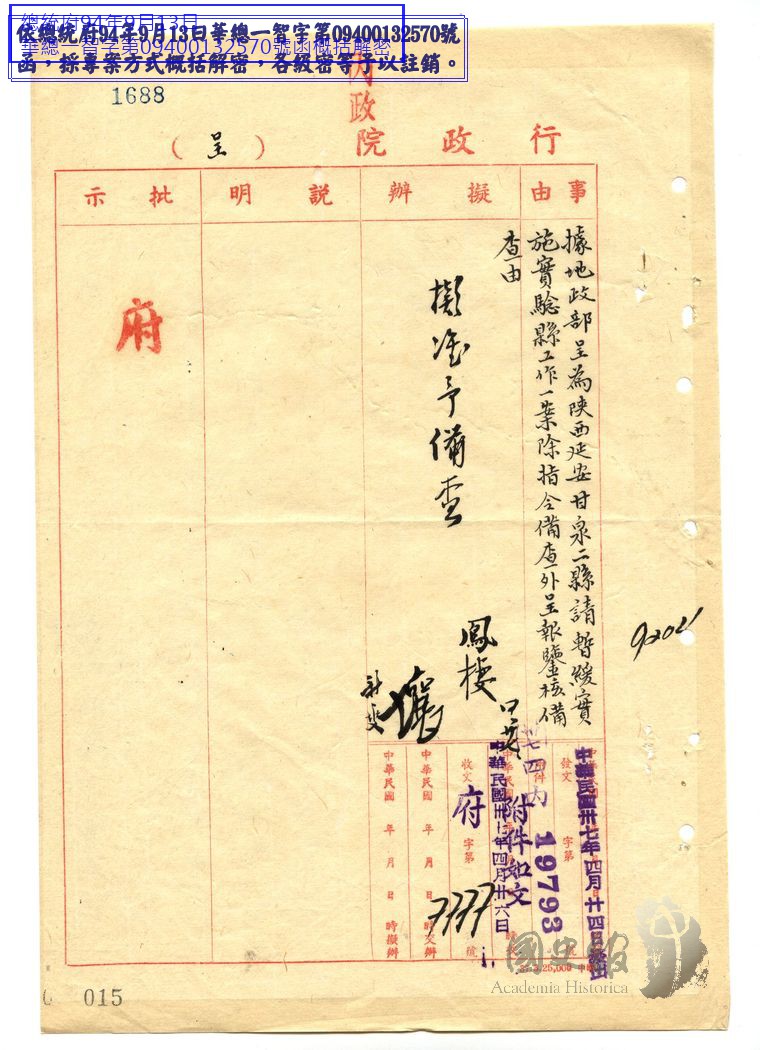 總統府94年9月13日
華總一智字第09400132570號函概括解密
依總統府94年9月13日華總一智字第09400132570號
函,採專案方式概括解密,各級密等予以註銷。
1688
內政
行政院
(呈)
事由
擬辦
說明
批示
據地政部呈為陝西延安甘泉二縣請暫緩實
施實驗縣工作一案除指令備查外呈報鑒核備
查由
擬准予備查
鳳樓
府
9204
中華民國卅七年四月廿四日發出
發文
字第
附件
卅七四內
19793
附件如文
中華民國卅七年四月廿六日
收文
府
字第
7777
號
中華民國 年 月 日 時交辦
中華民國 年 月 日 時擬辦
25,000
國史館
Academia Historica
015